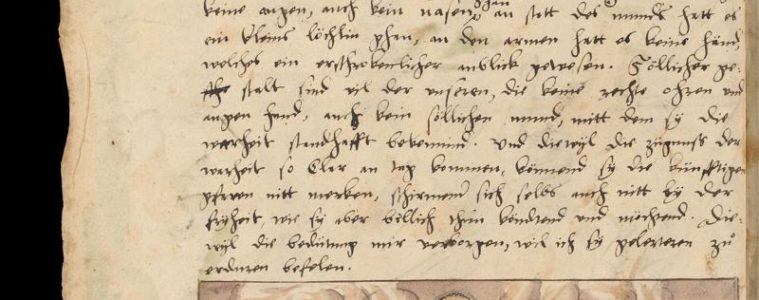 keine augen, auch kein nasen, an statt des munds hatt es
ein kleine löchlin ghan, an den armen hatt es keine händ,
welches ein erschrokenlicher anblick gewesen. Söllicher ge-
stalt sind vil der unseren, die keine rechte ohren und
augen hand, auch kein söllichen mund, mitt dem sy die
warheit standhafft bekennind. Und diewyl die zügnuss der
warheit so clar an tag kommen, könnend sy die künfftigen
gfaren nitt merken, schirmend sich selbs auch nitt by der
fryheit, wie sy aber billich thun köndtend und möchtend. Die-
wyl die bedütung mir verborgen, wil ich sy gelerteren zu
erduren befelen.